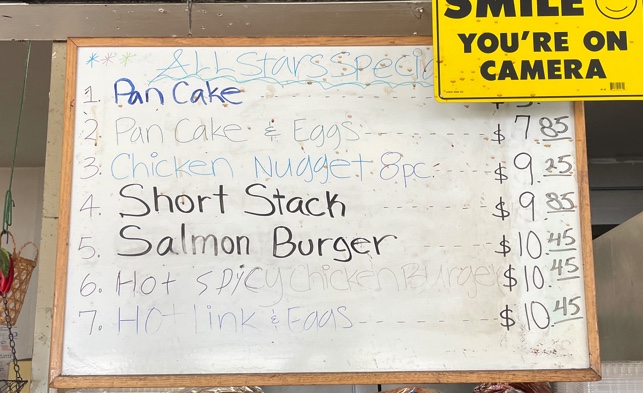 SMILE
YOU'RE ON
CAMERA
*** ALL Stars Specia
1. Pan Cake
2. Pan Cake & Eggs $7.85
3. Chicken Nugget 8pc. $9.25
4. Short Stack $9.85
5. Salmon Burger $10.45
6. Hot Spicy Chicken Burger $10.45
7. Hot Link & Eggs $10.45